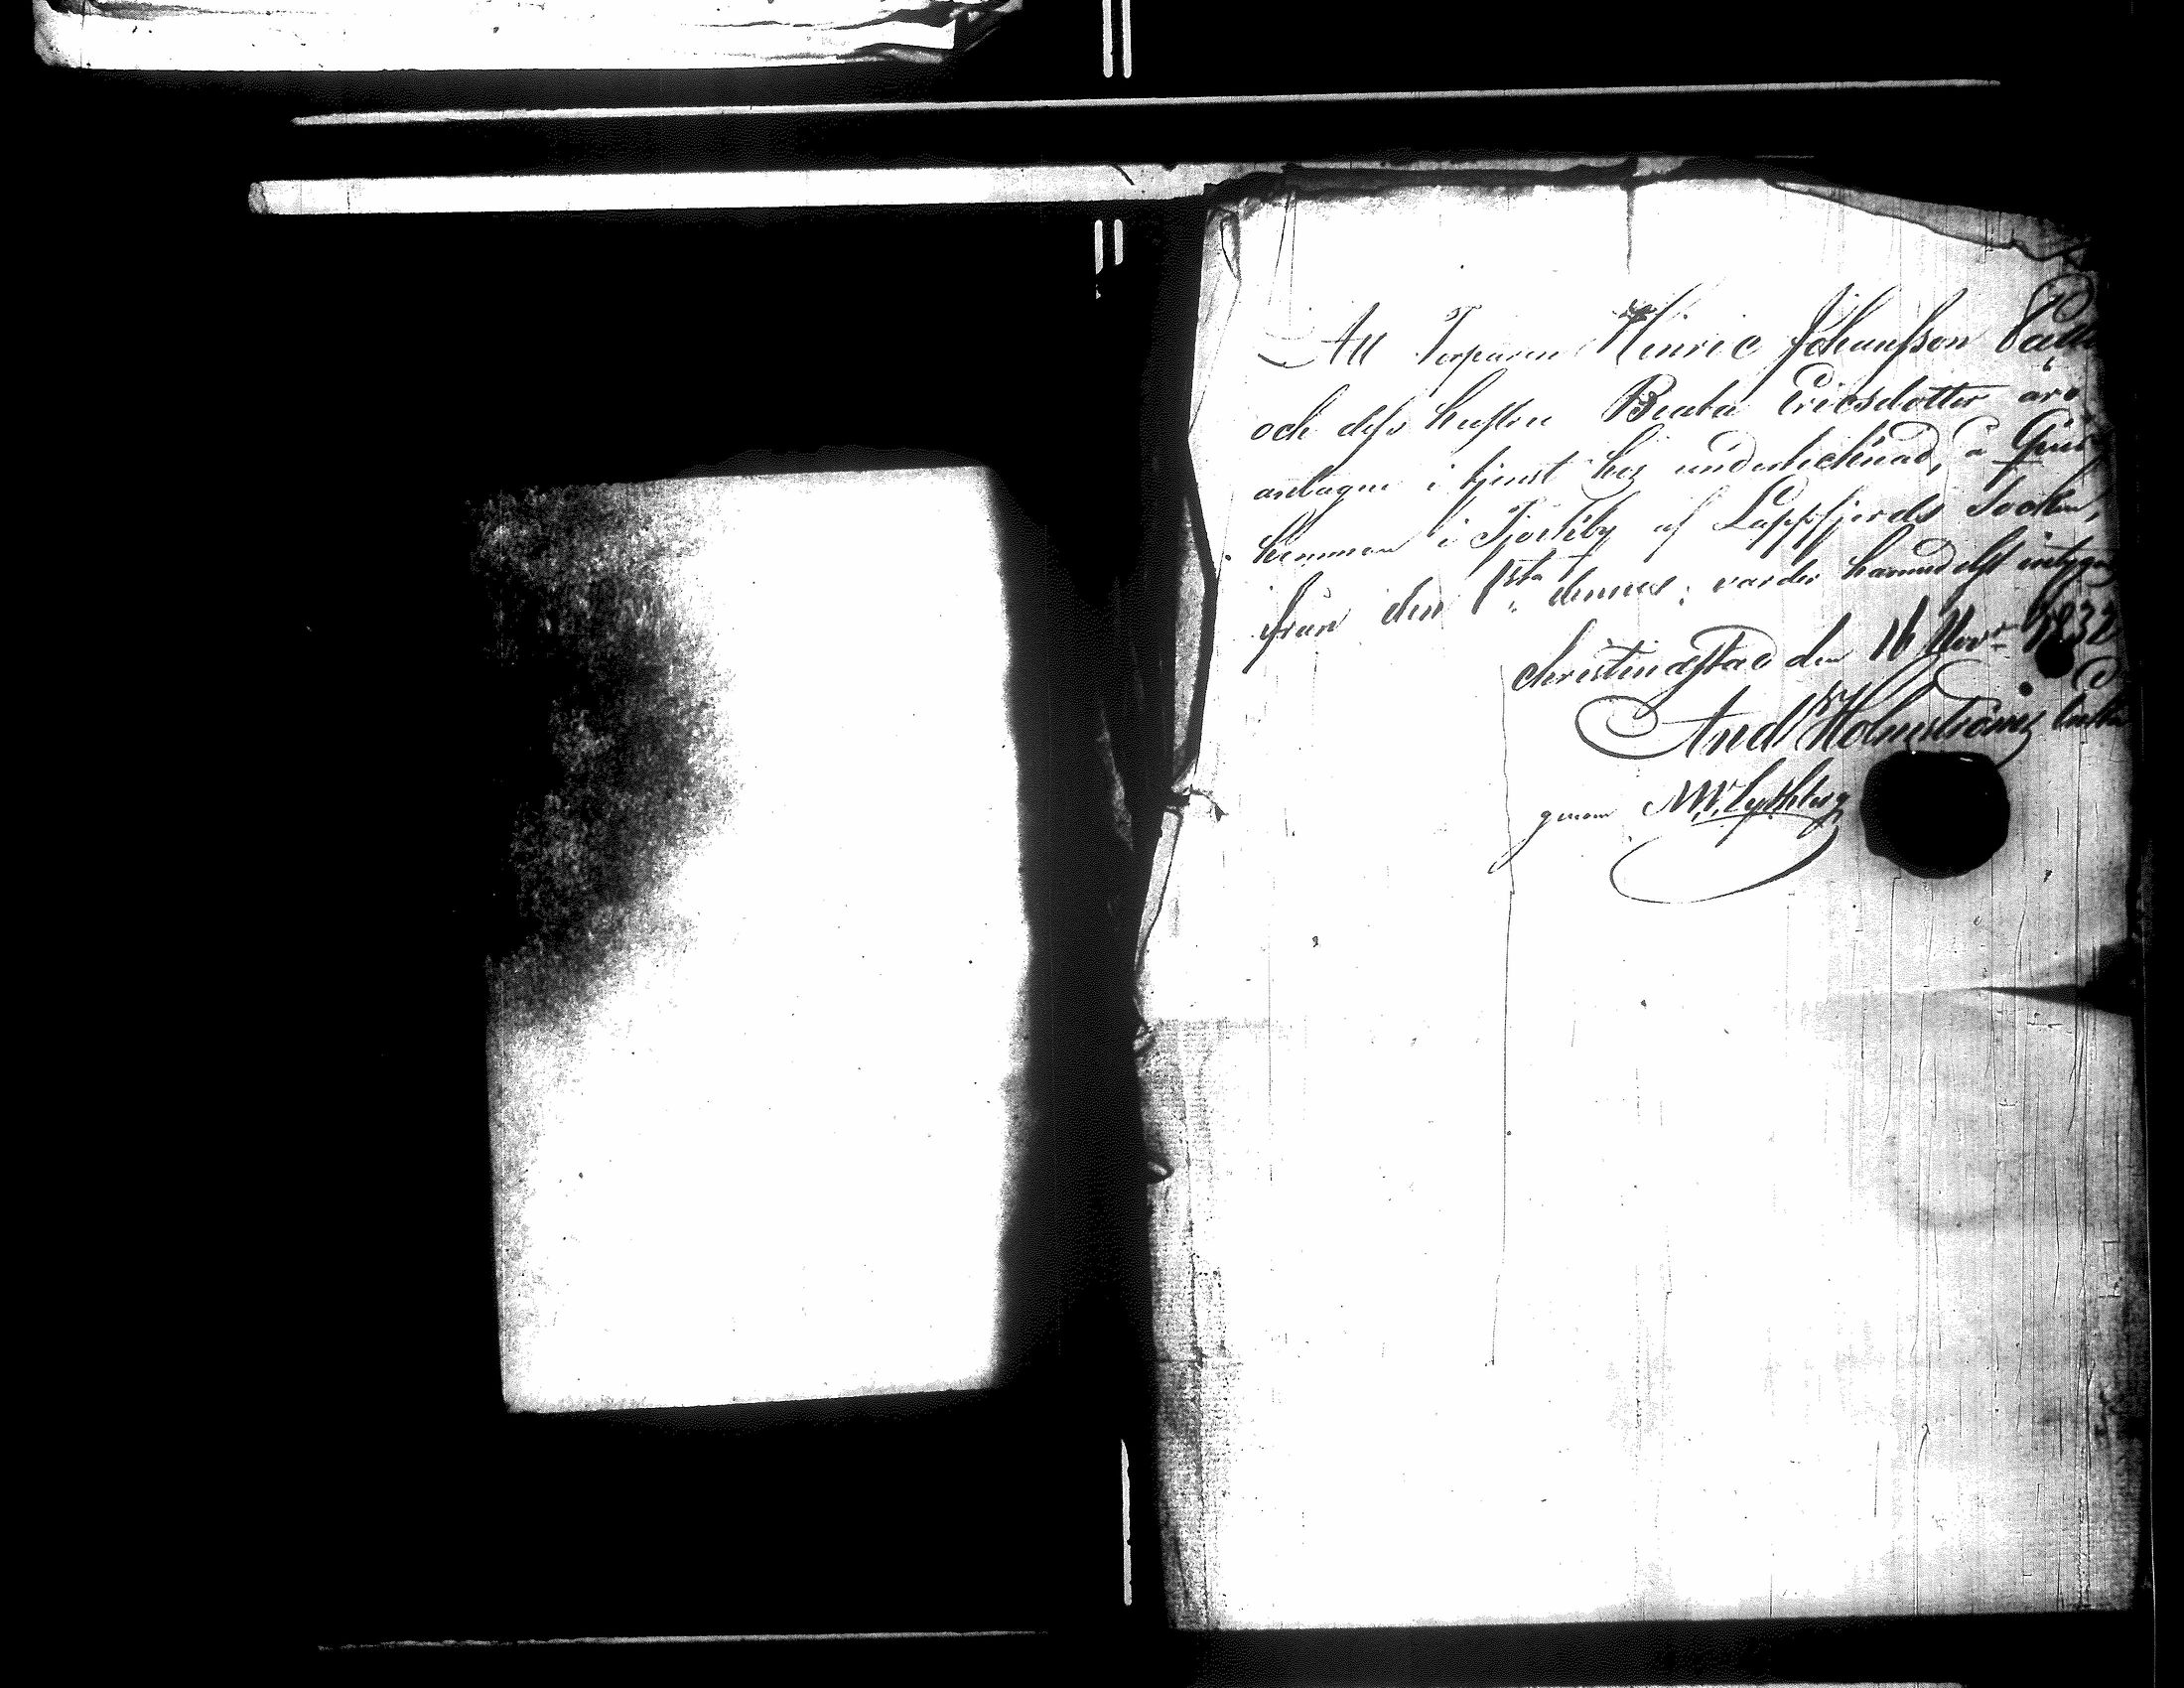 Att Torparen Hinric Johansson
och dess hustru Beata Ericsdotter äro
antagne i tjenst hos undertecknad, å
hemman i Tjockby af Lappfjerds Socken,
från den 1sta dennes; varder härmedelst intygas
Christinæstad den 16 Novr 1832
And Holmströms
genom